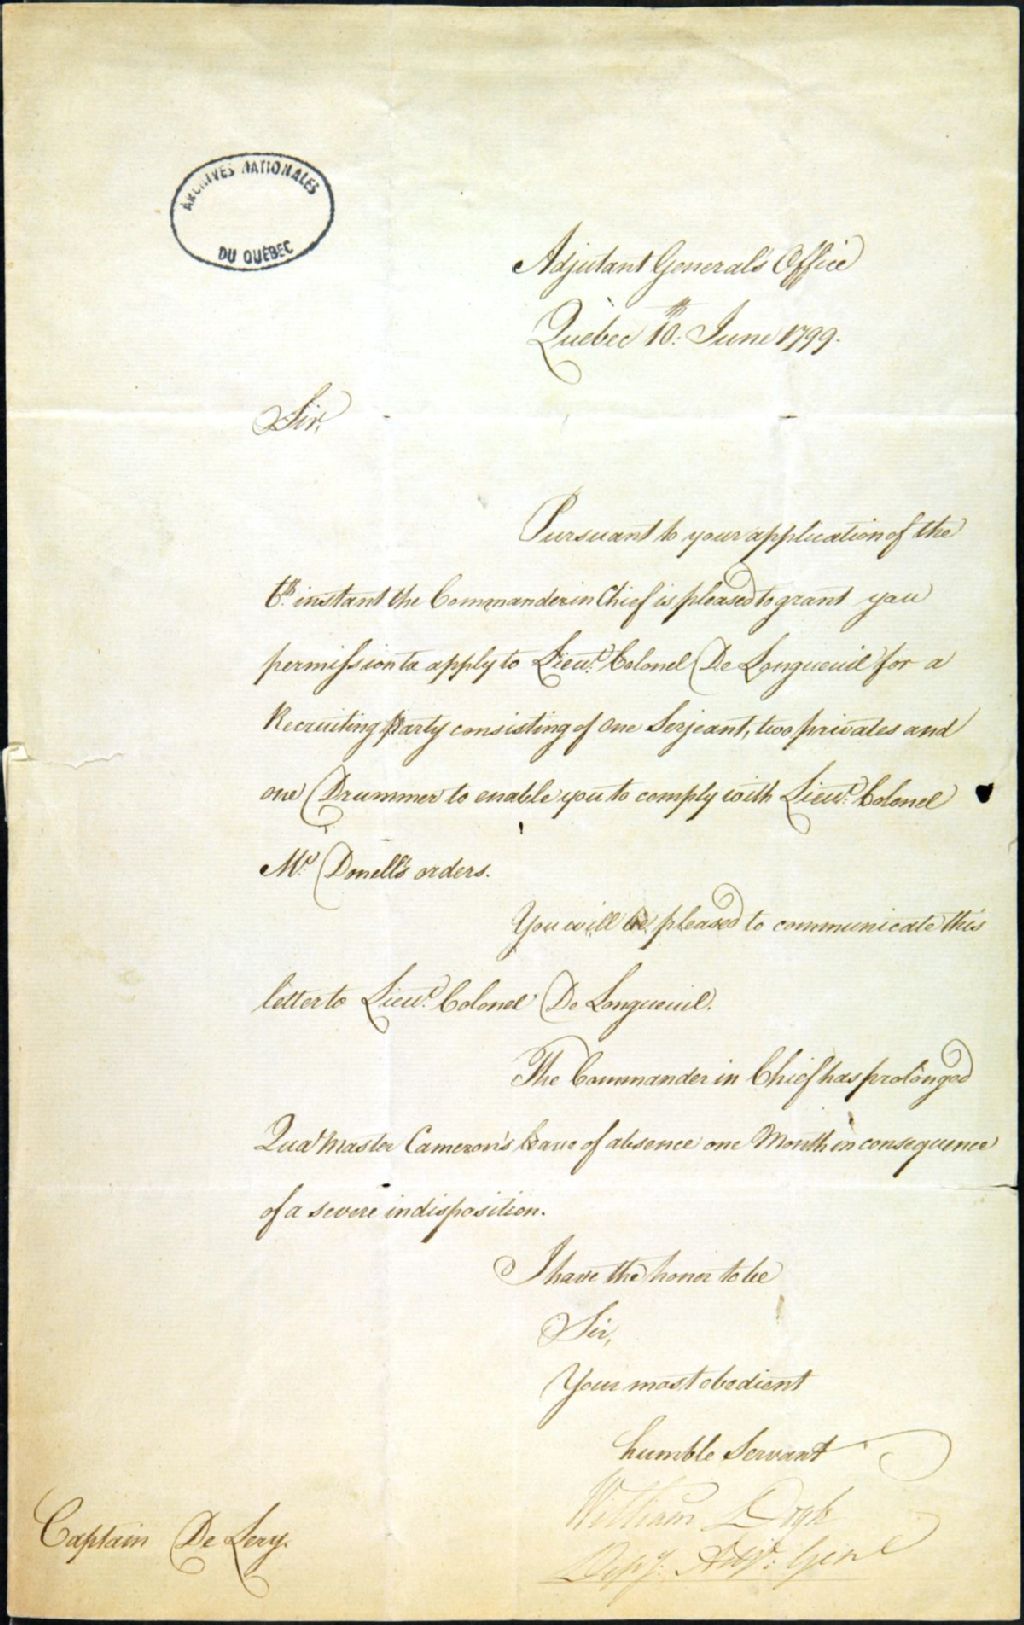 ARCHIVES NATIONALES
DU QUÉBEC
Adjutant General's Office
Quebec 10:th June 1799.
Sir,
Pursuant to your application of the
6th instant the Commander in Chief is pleased to grant you
permission to apply to Lieut. Colonel De Longueuil for a
Recruiting Party consisting of One Serjeant, two privates and
one Drummer to enable you to comply with Lieut. Colonel
Mc Donell's orders.
You will be pleased to communicate this
letter to Lieut. Colonel De Longueuil.
The Commander in Chief has prolonged
Quar Master Cameron's leave of absence one Month in consequence
of a severe indisposition.
I have the honor to be
Sir,
Your most obedient
humble Servant
William
Depy. Adjt. Genl
Captain De Lery.